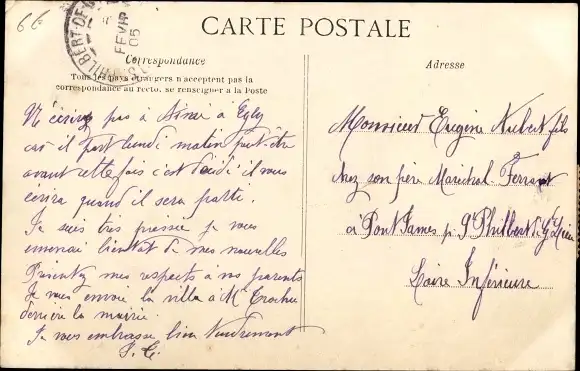 66
CARTE POSTALE
PHILBERT-DE-
FEVR
05
Correspondance
Tous les pays étrangers n'acceptent pas la
correspondance au recto, se renseigner à la Poste
N'écrivez pas à Aimé à Egly
car il part lundi matin peut-être
avant cette fois c'est décidé il vous
écrira quand il sera parti.
Je suis très pressée je vous
enverrai bientôt de mes nouvelles
Présentez mes respects à vos parents
Je vous envoie la villa à Mr Trochu
derrière la mairie.
Je vous embrasse bien tendrement
Adresse
Monsieur Eugène Aubert fils
chez son père Maréchal Ferrant
à Pont James p. St Philbert de Gd Lieu
Loire Inférieure